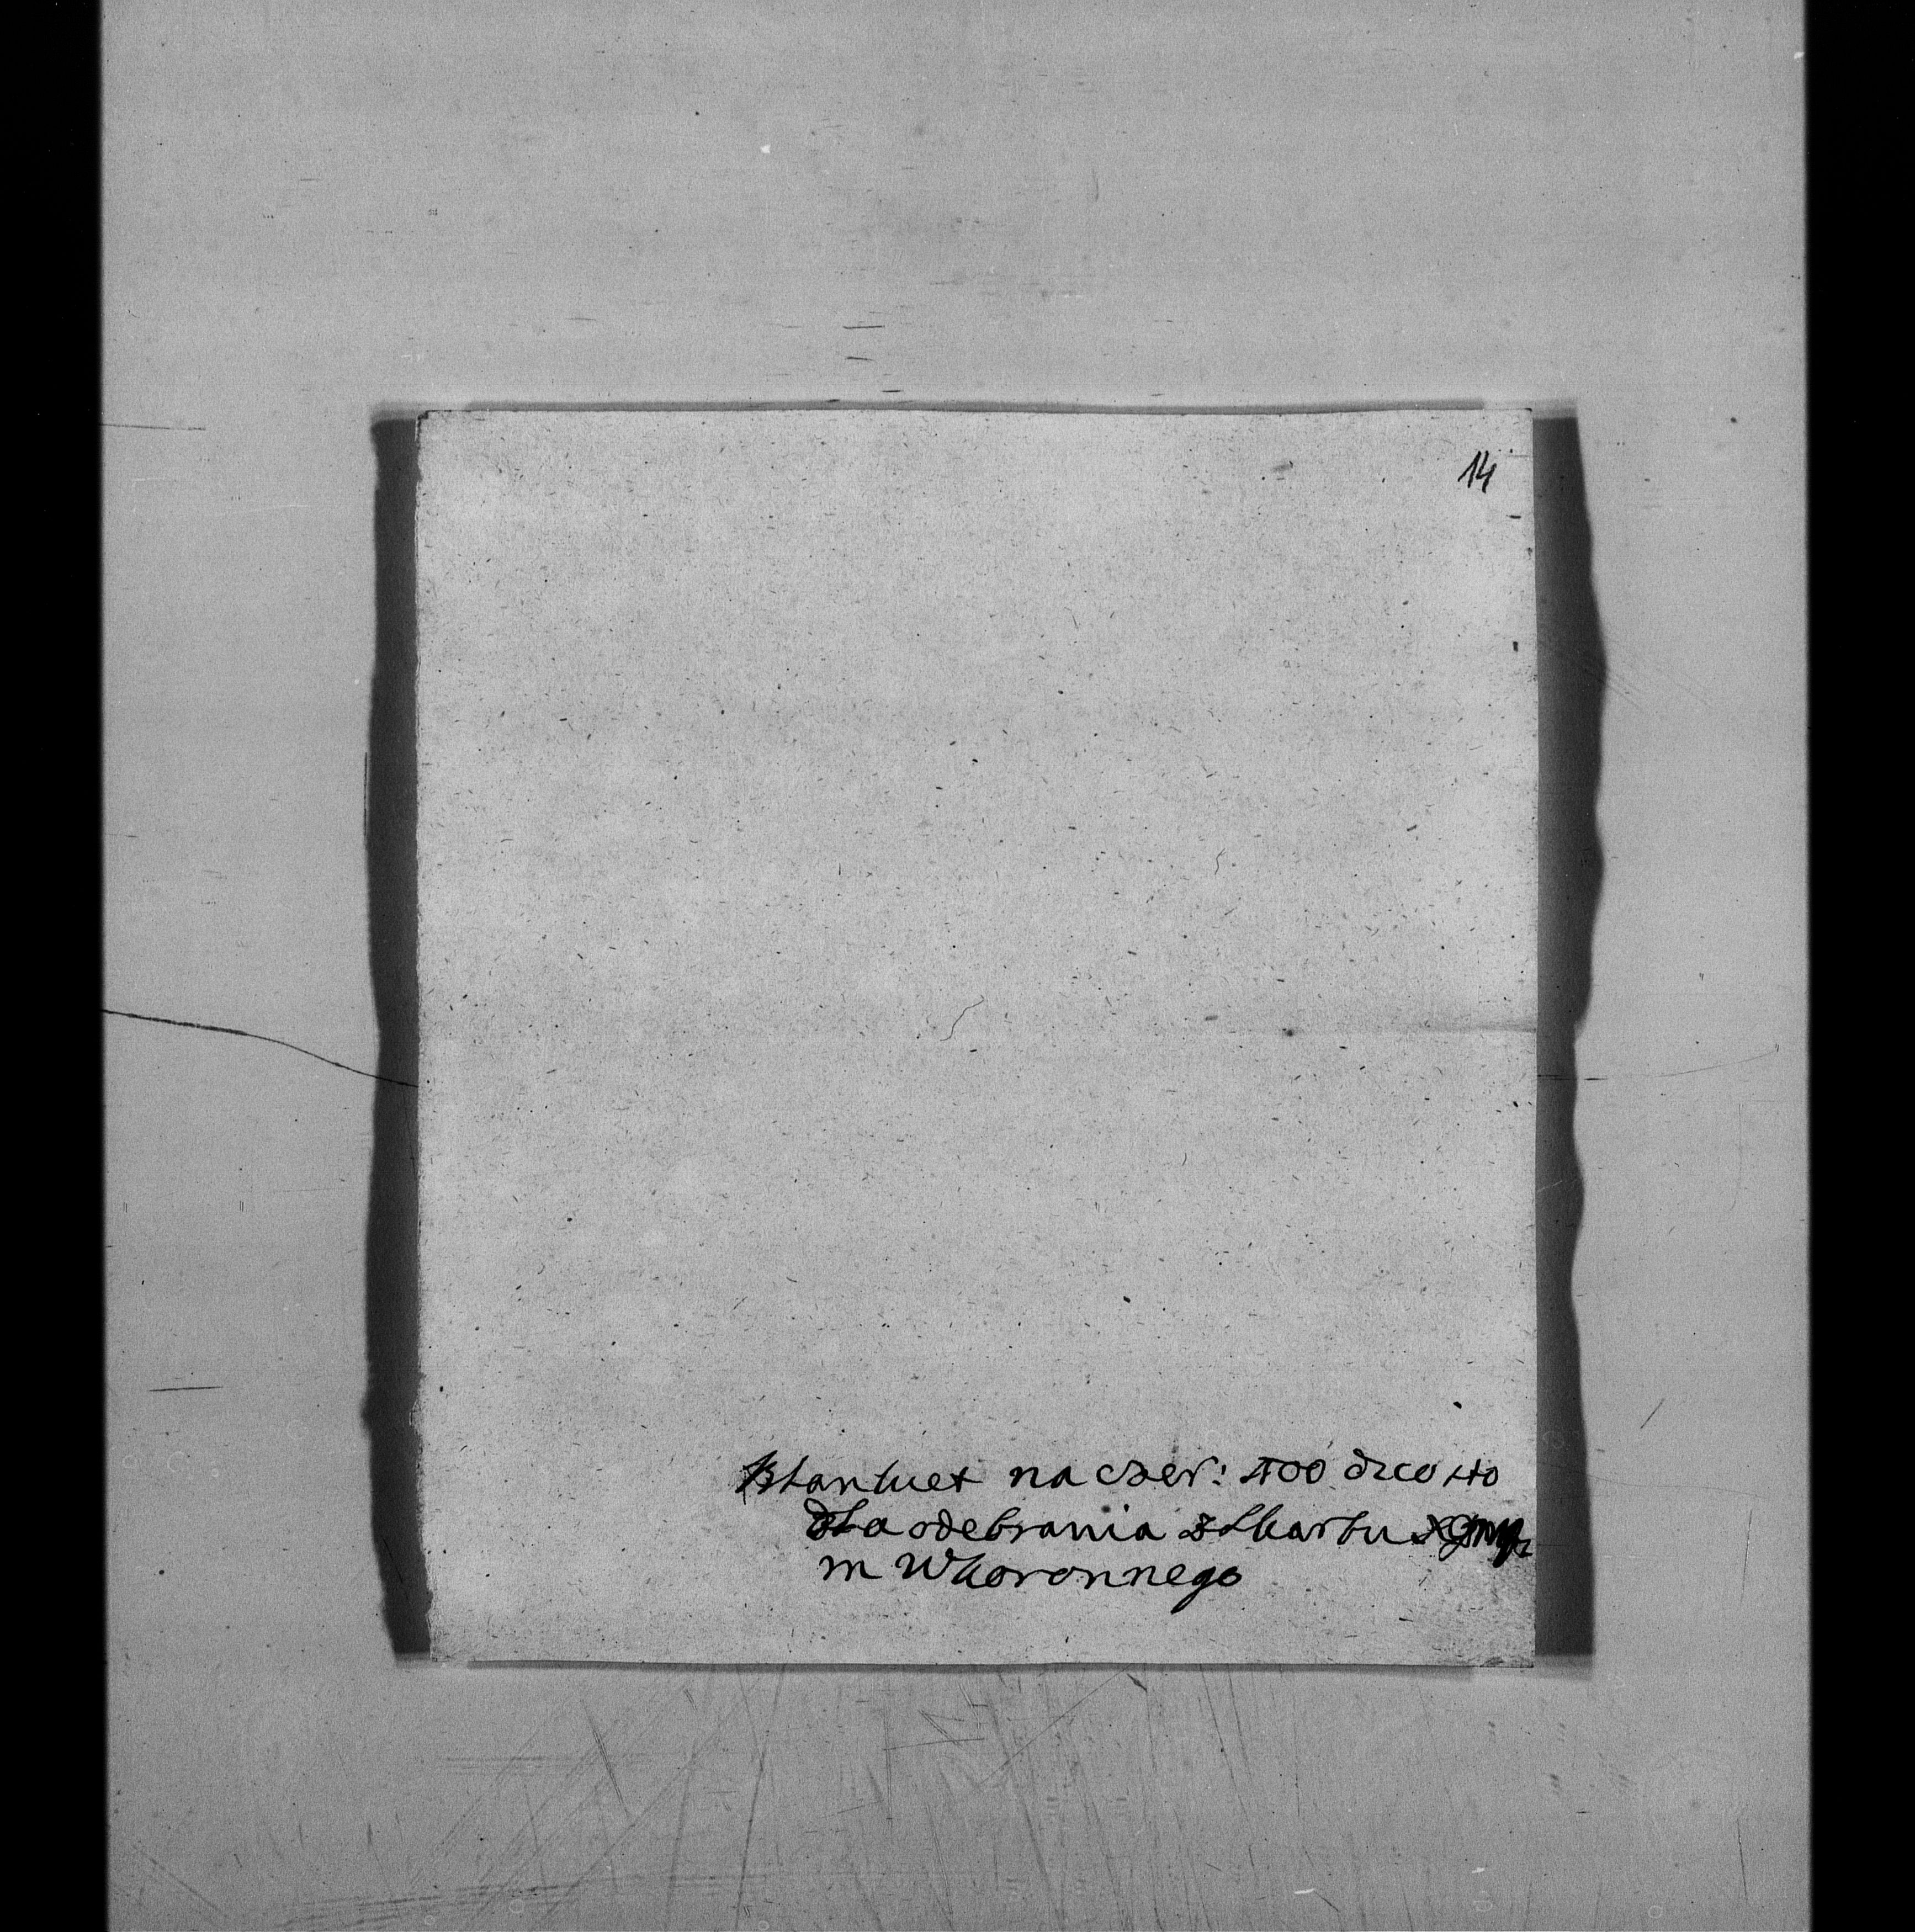 14
Blankiet na czer: 400
dla odebrania z Skarbu
m W koronnego